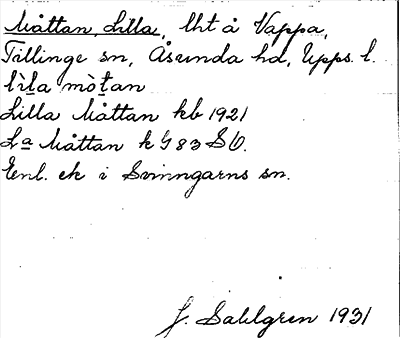 Måttan, Lilla, lht å Vappa,
Tillinge sn, Åsunda hd, Upps. l.
lìla mòtan
Lilla Måttan kb 1921
La Måttan k G 83 SV.
Enl. ek i Svinngarns sn.
J. Sahlgren 1931